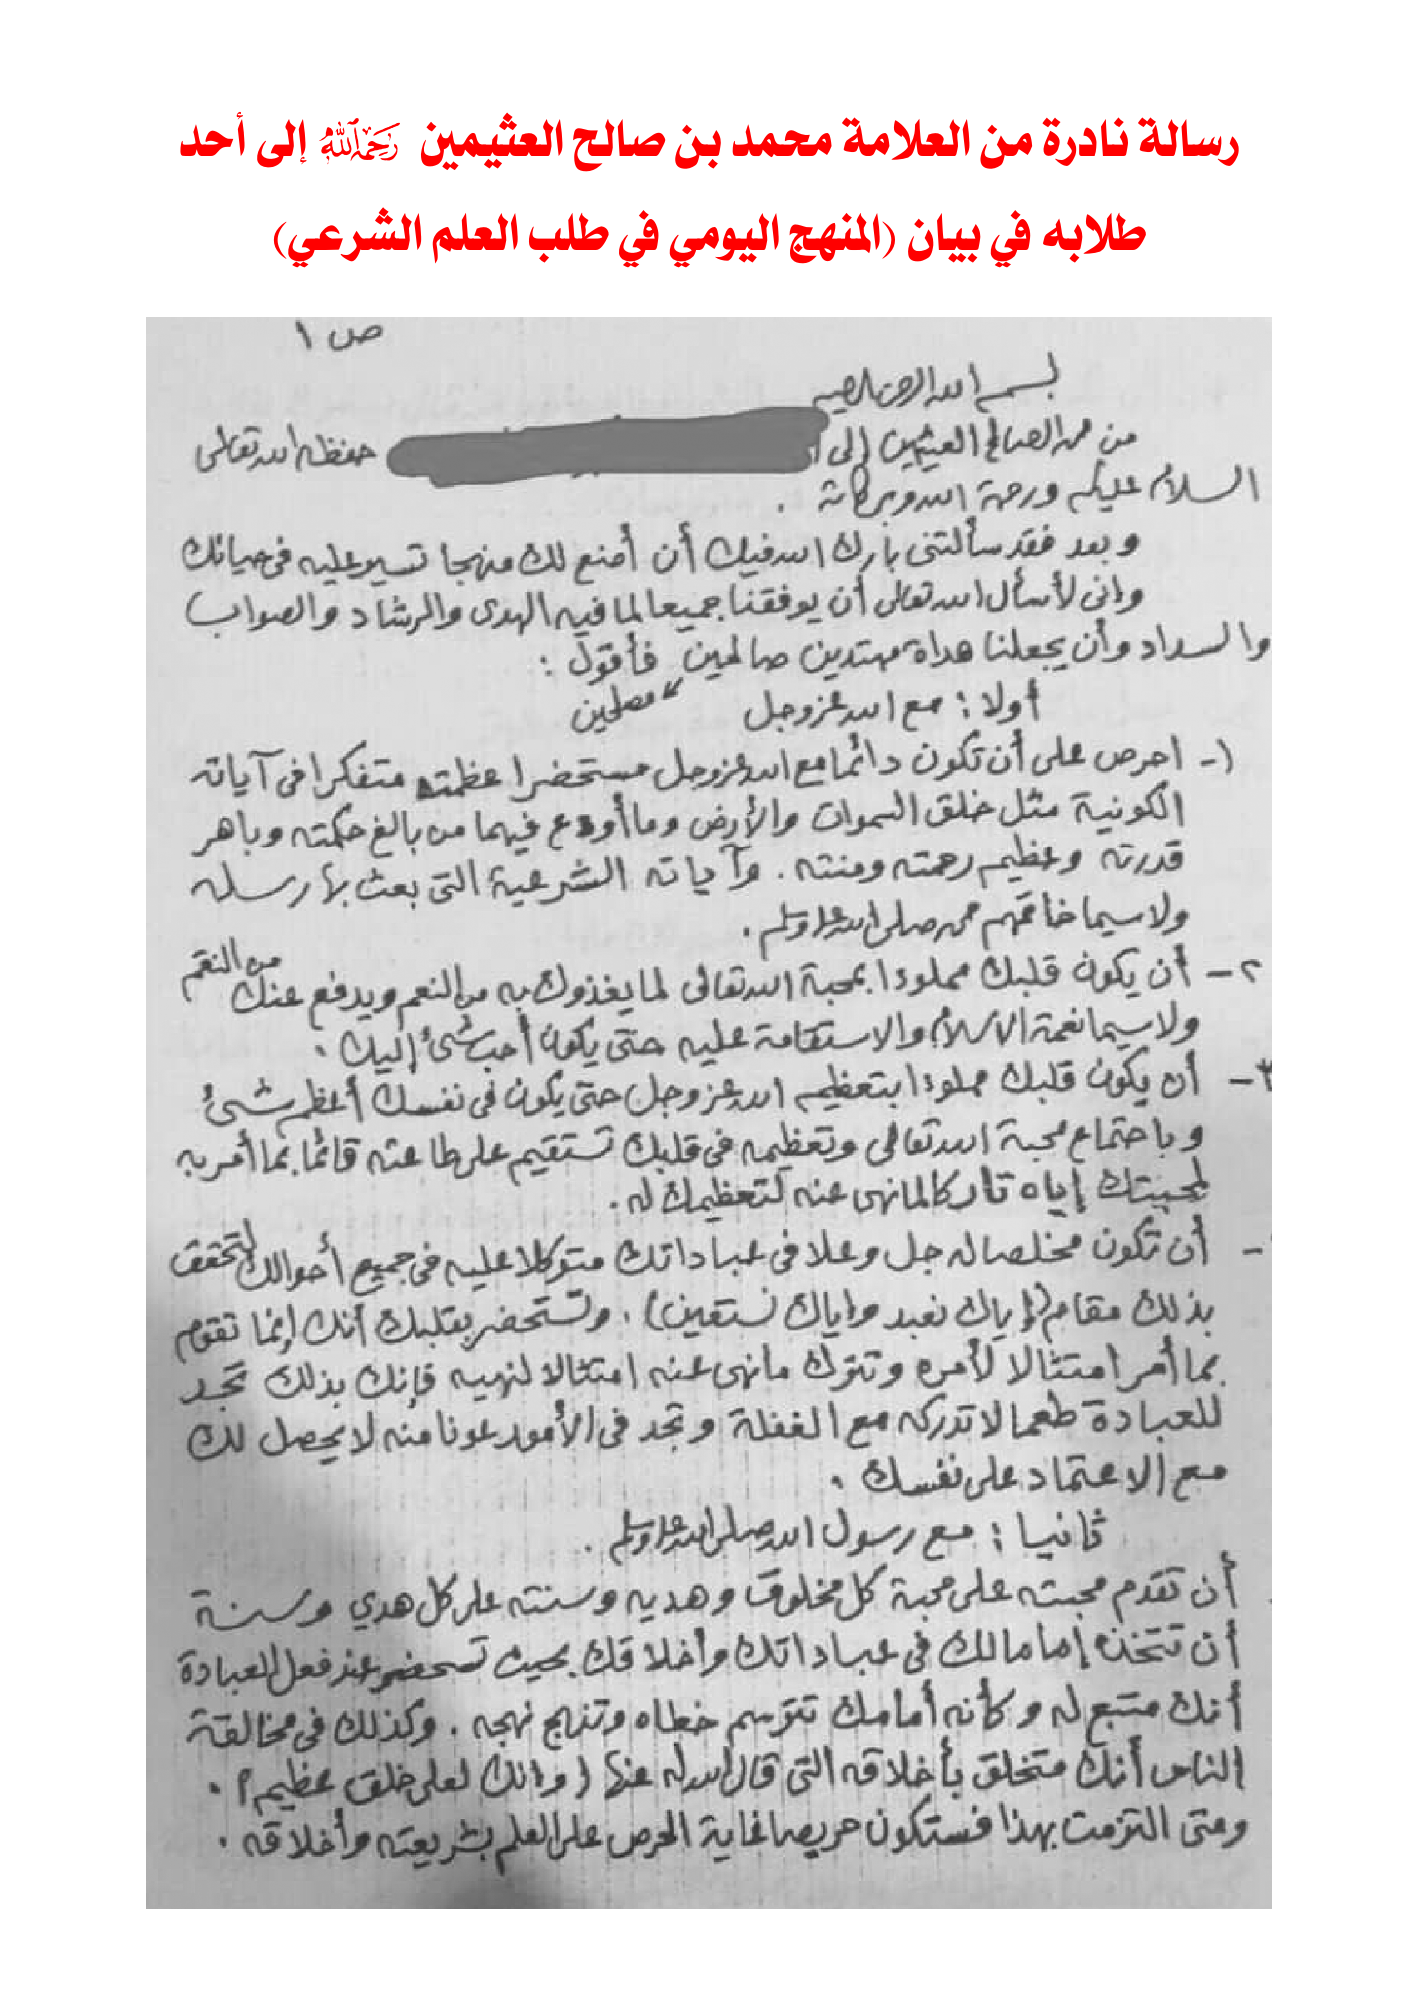 رسالة نادرة من العلامة محمد بن صالح العثيمين رحمه الله إلى أحد
طلابه في بيان (المنهج اليومي في طلب العلم الشرعي)
ص ١
بسم الله الرحمن الرحيم
من محمد الصالح العثيمين إلى حفظه الله تعالى
السلام عليكم ورحمة الله وبركاته .
وبعد فقد سألتني بارك الله فيك أن أضع لك منهجا تسير عليه في حياتك
وإني لأسأل الله تعالى أن يوفقنا جميعا لما فيه الهدى والرشاد والصواب
والسداد وأن يجعلنا هداة مهتدين صالحين مصلحين فأقول :
أولا : مع الله عز وجل
١- احرص على أن تكون دائما مع الله عز وجل مستحضرا عظمته متفكرا في آياته
الكونية مثل خلق السموات والأرض وما أودع فيهما من بالغ حكمته وباهر
قدرته وعظيم رحمته ومنته . وآياته الشرعية التي بعث بها رسله
ولا سيما خاتمهم محمد صلى الله عليه وسلم .
٢- أن يكون قلبك مملوءا بمحبة الله تعالى لما يغذوك به من النعم ويدفع عنك من النقم
ولا سيما نعمة الإسلام والاستقامة عليه حتى يكون أحب شئ إليك .
٣- أن يكون قلبك مملوءا بتعظيم الله عز وجل حتى يكون في نفسك أعظم شئ
وباجتماع محبة الله تعالى وتعظيمه في قلبك تستقيم على طاعته قائما بما أمر به
لمحبتك إياه تاركا لما نهى عنه لتعظيمك له .
- أن تكون مخلصا له جل وعلا في عباداتك متوكلا عليه في جميع أحوالك لتحقق
بذلك مقام (إياك نعبد وإياك نستعين) . وتستحضر بقلبك أنك إنما تقوم
بما أمر امتثالا لأمره وتترك ما نهى عنه امتثالا لنهيه فإنك بذلك تجد
للعبادة طعما لا تدركه مع الغفلة وتجد في الأمور عونا منه لا يحصل لك
مع الاعتماد على نفسك .
ثانيا : مع رسول الله صلى الله عليه وسلم .
أن تقدم محبته على محبة كل مخلوق وهديه وسنته على كل هدي وسنة
أن تتخذه إماما لك في عباداتك وأخلاقك بحيث تستحضر عند فعل العبادة
أنك متبع له وكأنه أمامك تترسم خطاه وتنهج نهجه . وكذلك في مخالقة
الناس أنك متخلق بأخلاقه التي قال الله له عنها (وإنك لعلى خلق عظيم) .
ومتى التزمت بهذا فستكون حريصا غاية الحرص على العلم بشريعته وأخلاقه .